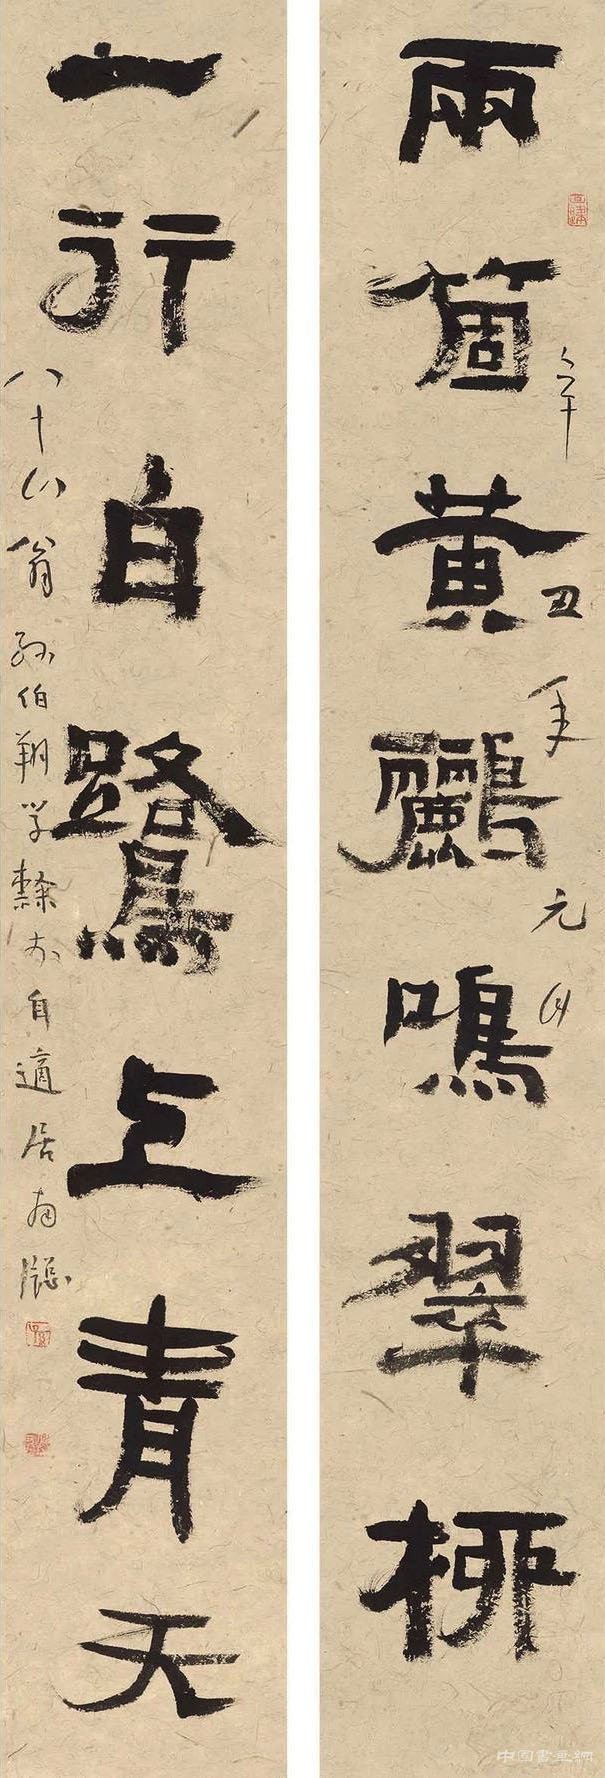 兩箇黃鸝鳴翠柳
辛丑年元月
一行白鷺上青天
八十八翁孫伯翔學隸於自適居南窗
中国書画網